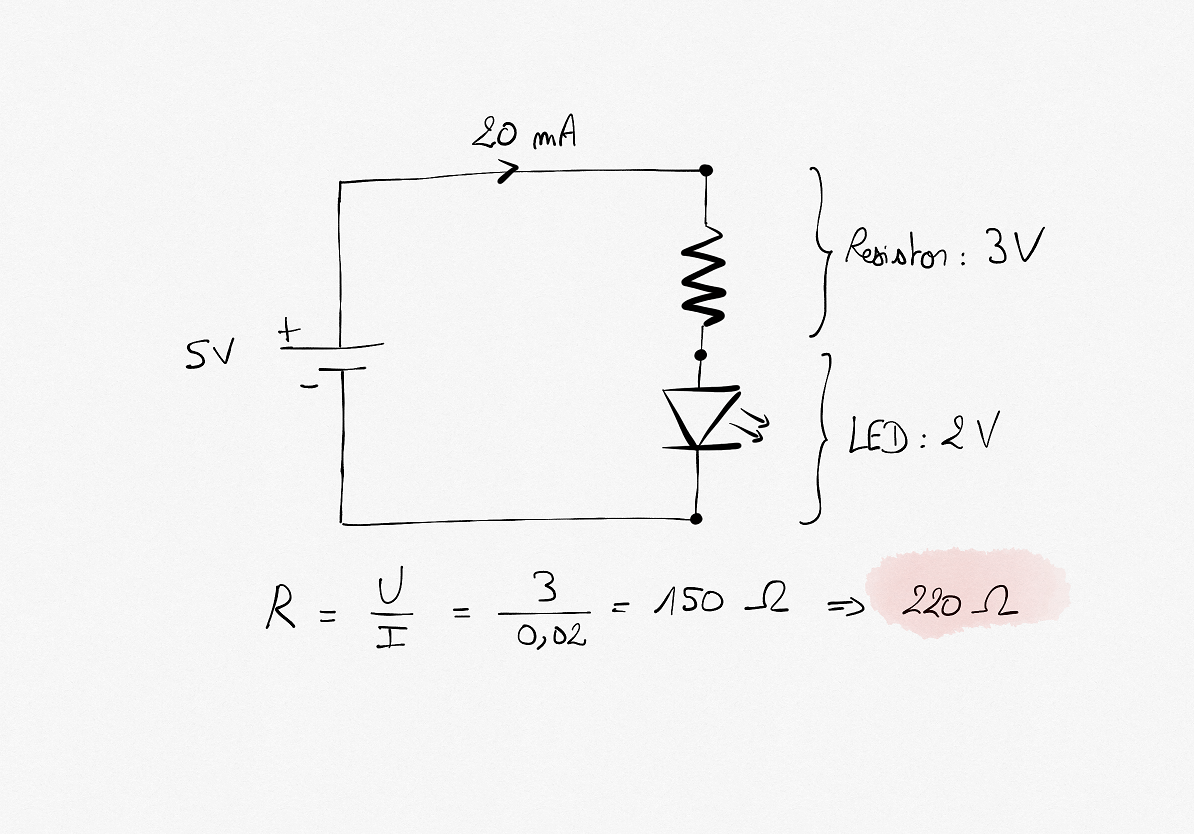 20 mA
+
5V
-
Resistor: 3V
LED: 2V
R = U/I = 3/0,02 = 150 Ω ⇒ 220 Ω